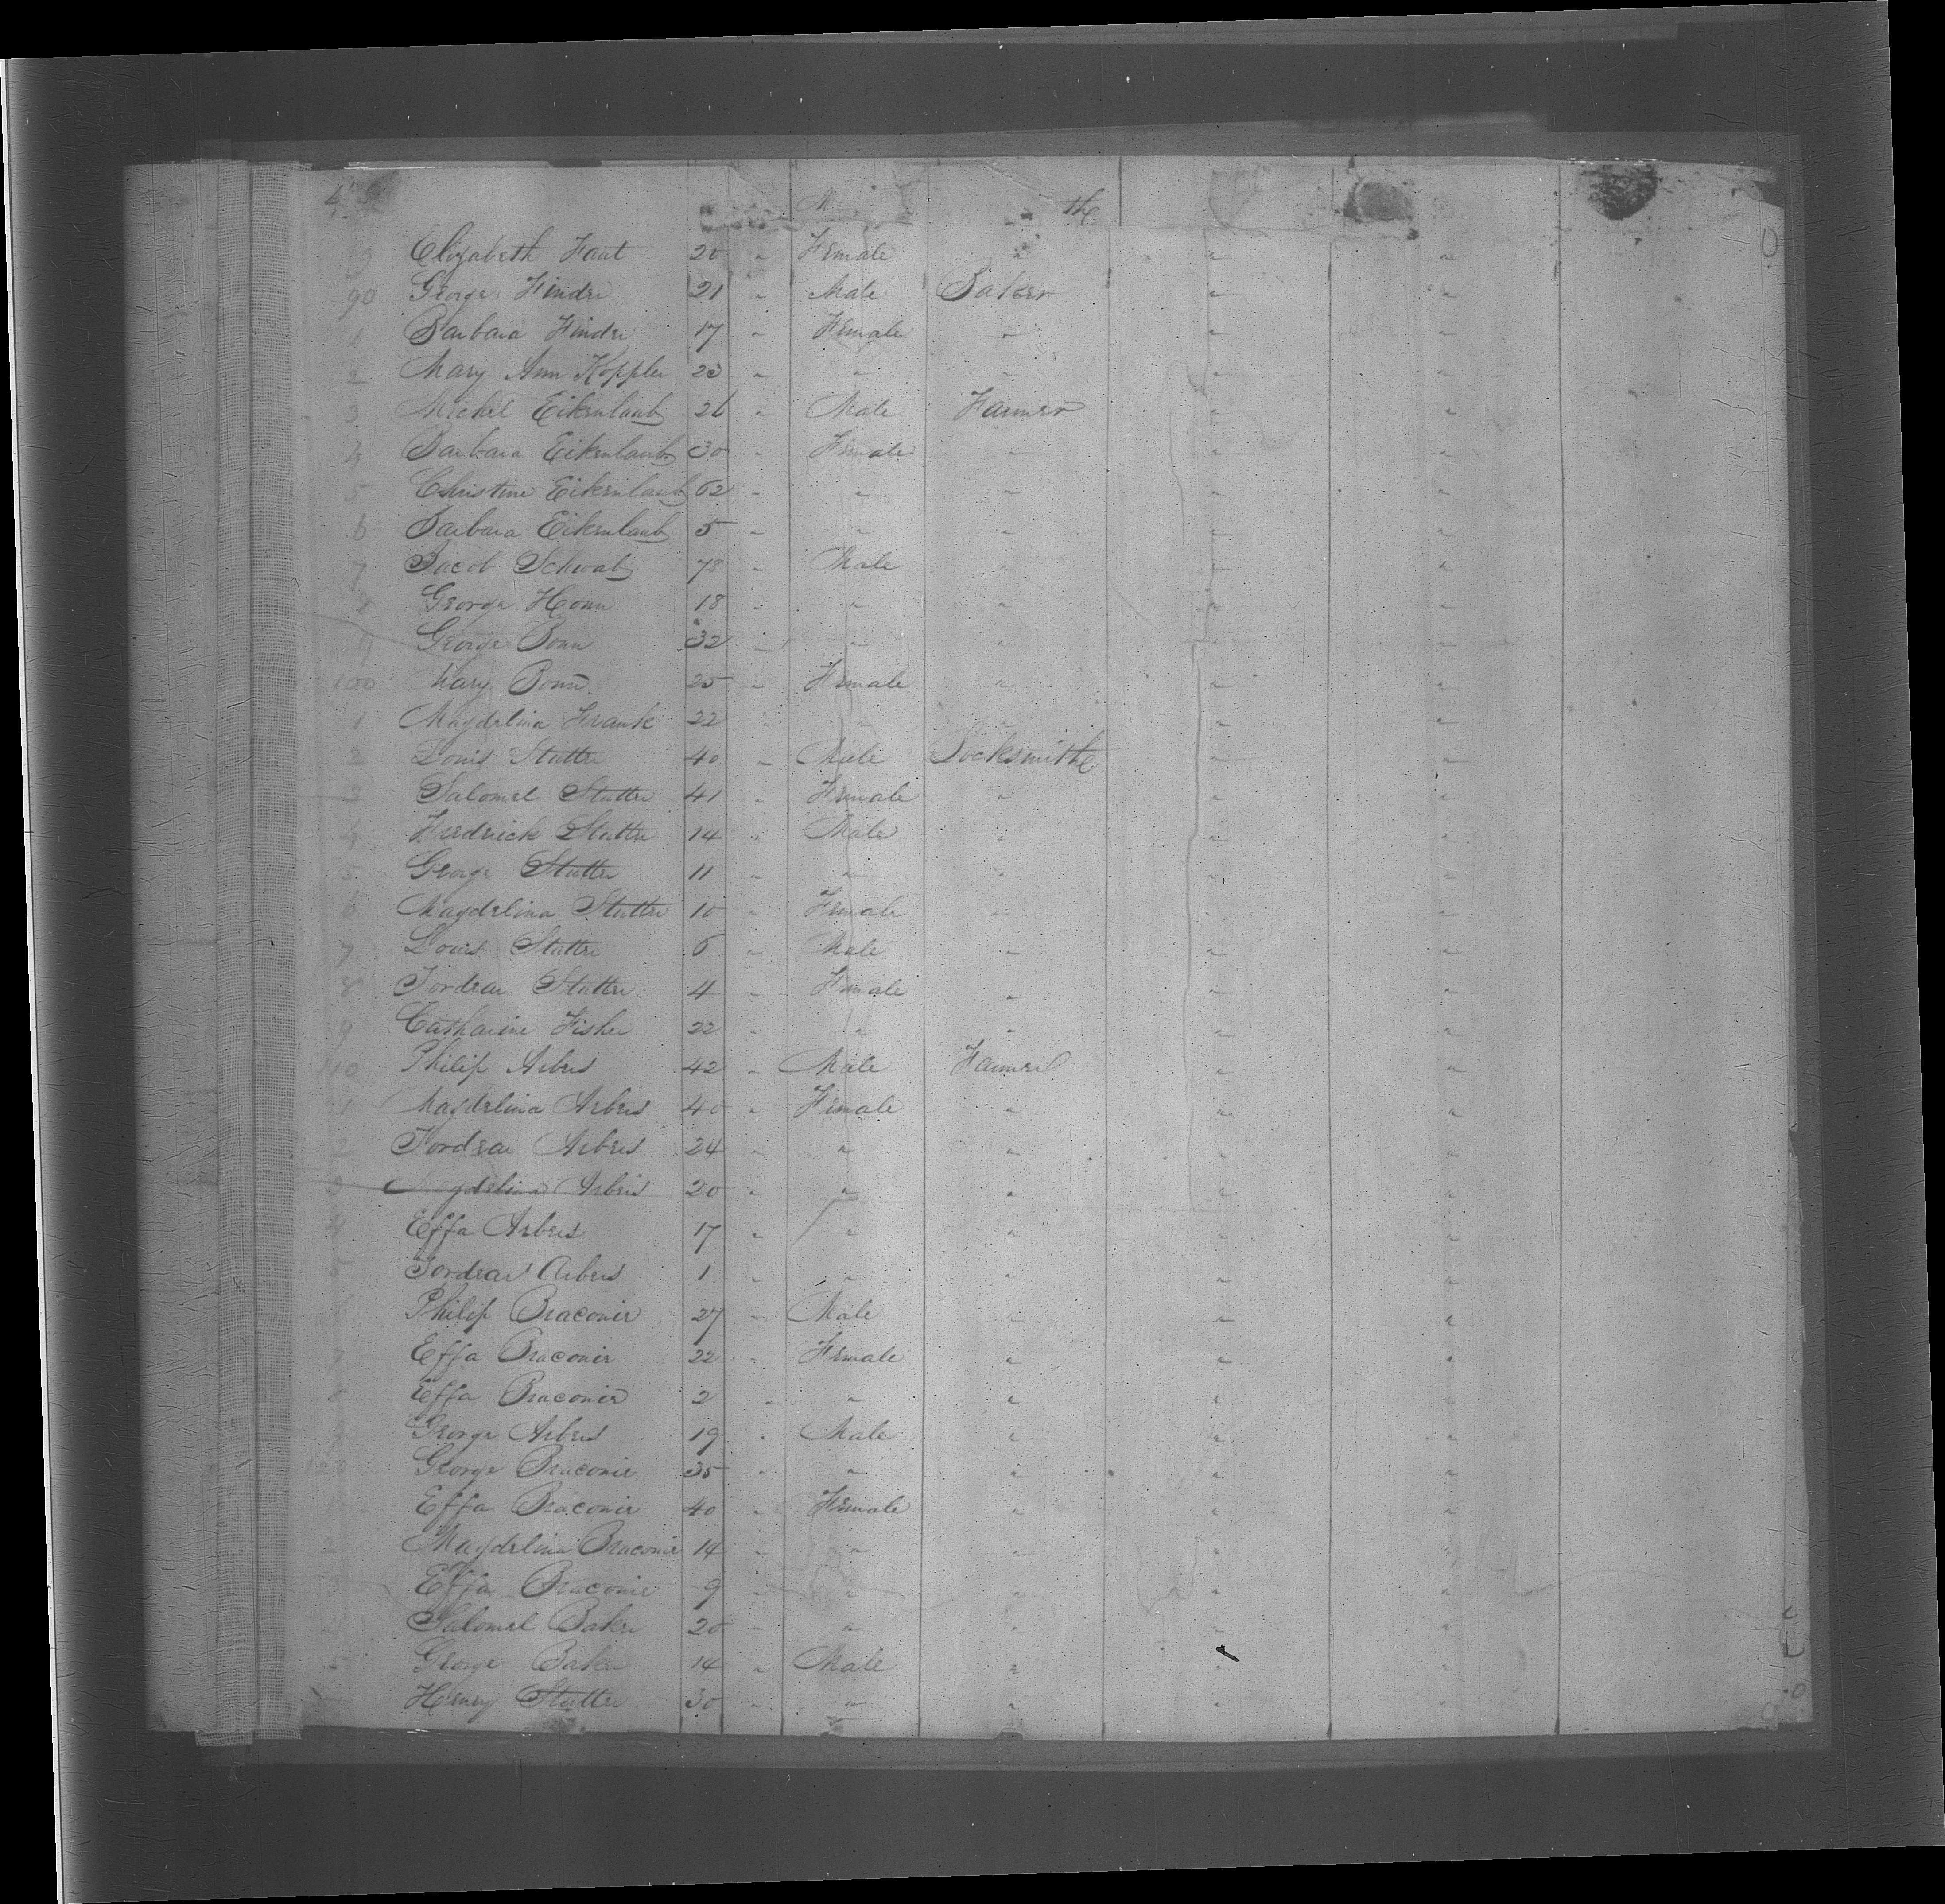 M the
9 Elizabeth Faut 20 " Female " " "
90 George Findre 21 " Male Baker " "
1 Barbara Findre 17 " Female " " "
2 Mary Ann Koppler 23 " " " " "
3 Michel Eikenlaub 26 " Male Farmer " "
4 Barbara Eikenlaub 30 " Female " " "
5 Christine Eikenlaub 62 " " " " "
6 Barbara Eikenlaub 5 " " " " "
7 Jacob Schwab 78 " Male " " "
8 George Honn 18 " " " " "
9 George Bonn 32 " " " " "
100 Mary Bonn 25 " Female " " "
1 Magdelina Frank 22 " " " " "
2 Louis Stutter 40 " Male Locksmith " "
3 Salomel Stutter 41 " Female " " "
4 Fredrick Stutter 14 " Male " " "
5 George Stutter 11 " " " " "
6 Magdelina Stutter 10 " Female " " "
7 Louis Stutter 6 " Male " " "
8 Jordear Stutter 4 " Female " " "
9 Catharine Fisher 22 " " " " "
110 Philip Arbes 42 " Male Farmer " "
1 Magdelina Arbes 40 " Female " " "
2 Jordear Arbes 24 " " " " "
3 Magdelina Arbes 20 " " " " "
4 Effa Arbes 17 " " " " "
5 Jordear Arbes 1 " " " " "
6 Philip Braconir 27 " Male " " "
7 Effa Braconir 22 " Female " " "
8 Effa Braconir 2 " " " " "
9 George Arbes 19 " Male " " "
120 George Braconir 35 " " " " "
Effa Braconir 40 " Female " " "
2 Magdelina Braconir 14 " " " " "
3 Effa Braconir 9 " " " " "
Salomel Baker 20 " " " " "
5 George Baker 14 " Male " " "
Henry Stutter 30 " " " " "